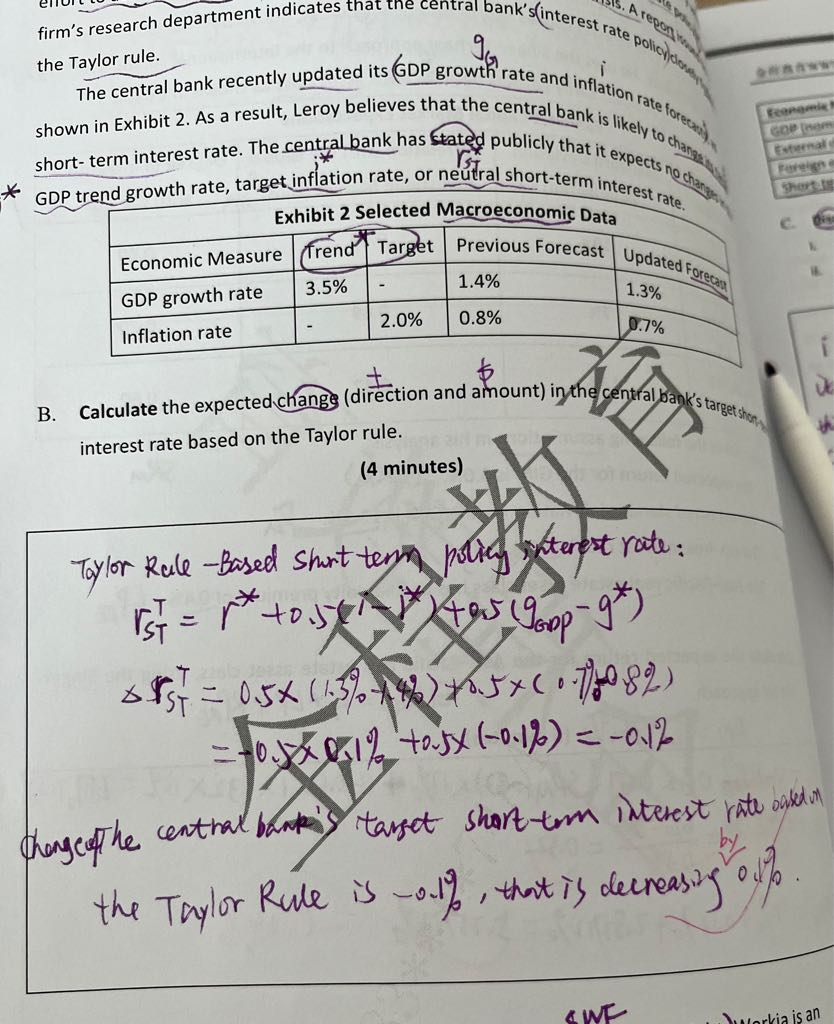 firm's research department indicates that the central bank's (interest rate policy) closely
the Taylor rule.
g G
i
The central bank recently updated its (GDP growth rate and inflation rate forecasts)
shown in Exhibit 2. As a result, Leroy believes that the central bank is likely to change its
short- term interest rate. The central bank has stated publicly that it expects no changes
i* r*ST
* GDP trend growth rate, target inflation rate, or neutral short-term interest rate.
Exhibit 2 Selected Macroeconomic Data
Economic Measure Trend* Target Previous Forecast Updated Forecast
GDP growth rate 3.5% - 1.4% 1.3%
Inflation rate - 2.0% 0.8% 0.7%
± $
B. Calculate the expected change (direction and amount) in the central bank's target short-
interest rate based on the Taylor rule.
(4 minutes)
Taylor Rule -Based short term policy interest rate:
r^T_ST = r* +0.5(i-i*)+0.5(gGDP-g*)
△ r^T_ST = 0.5×(1.3%-1.4%)+0.5×(0.7%-0.8%)
=-0.5×0.1% +0.5×(-0.1%) = -0.1%
Change of The central bank's target short-term interest rate based on
the Taylor Rule is -0.1%, that is decreasing by 0.1%.
SWF
is an